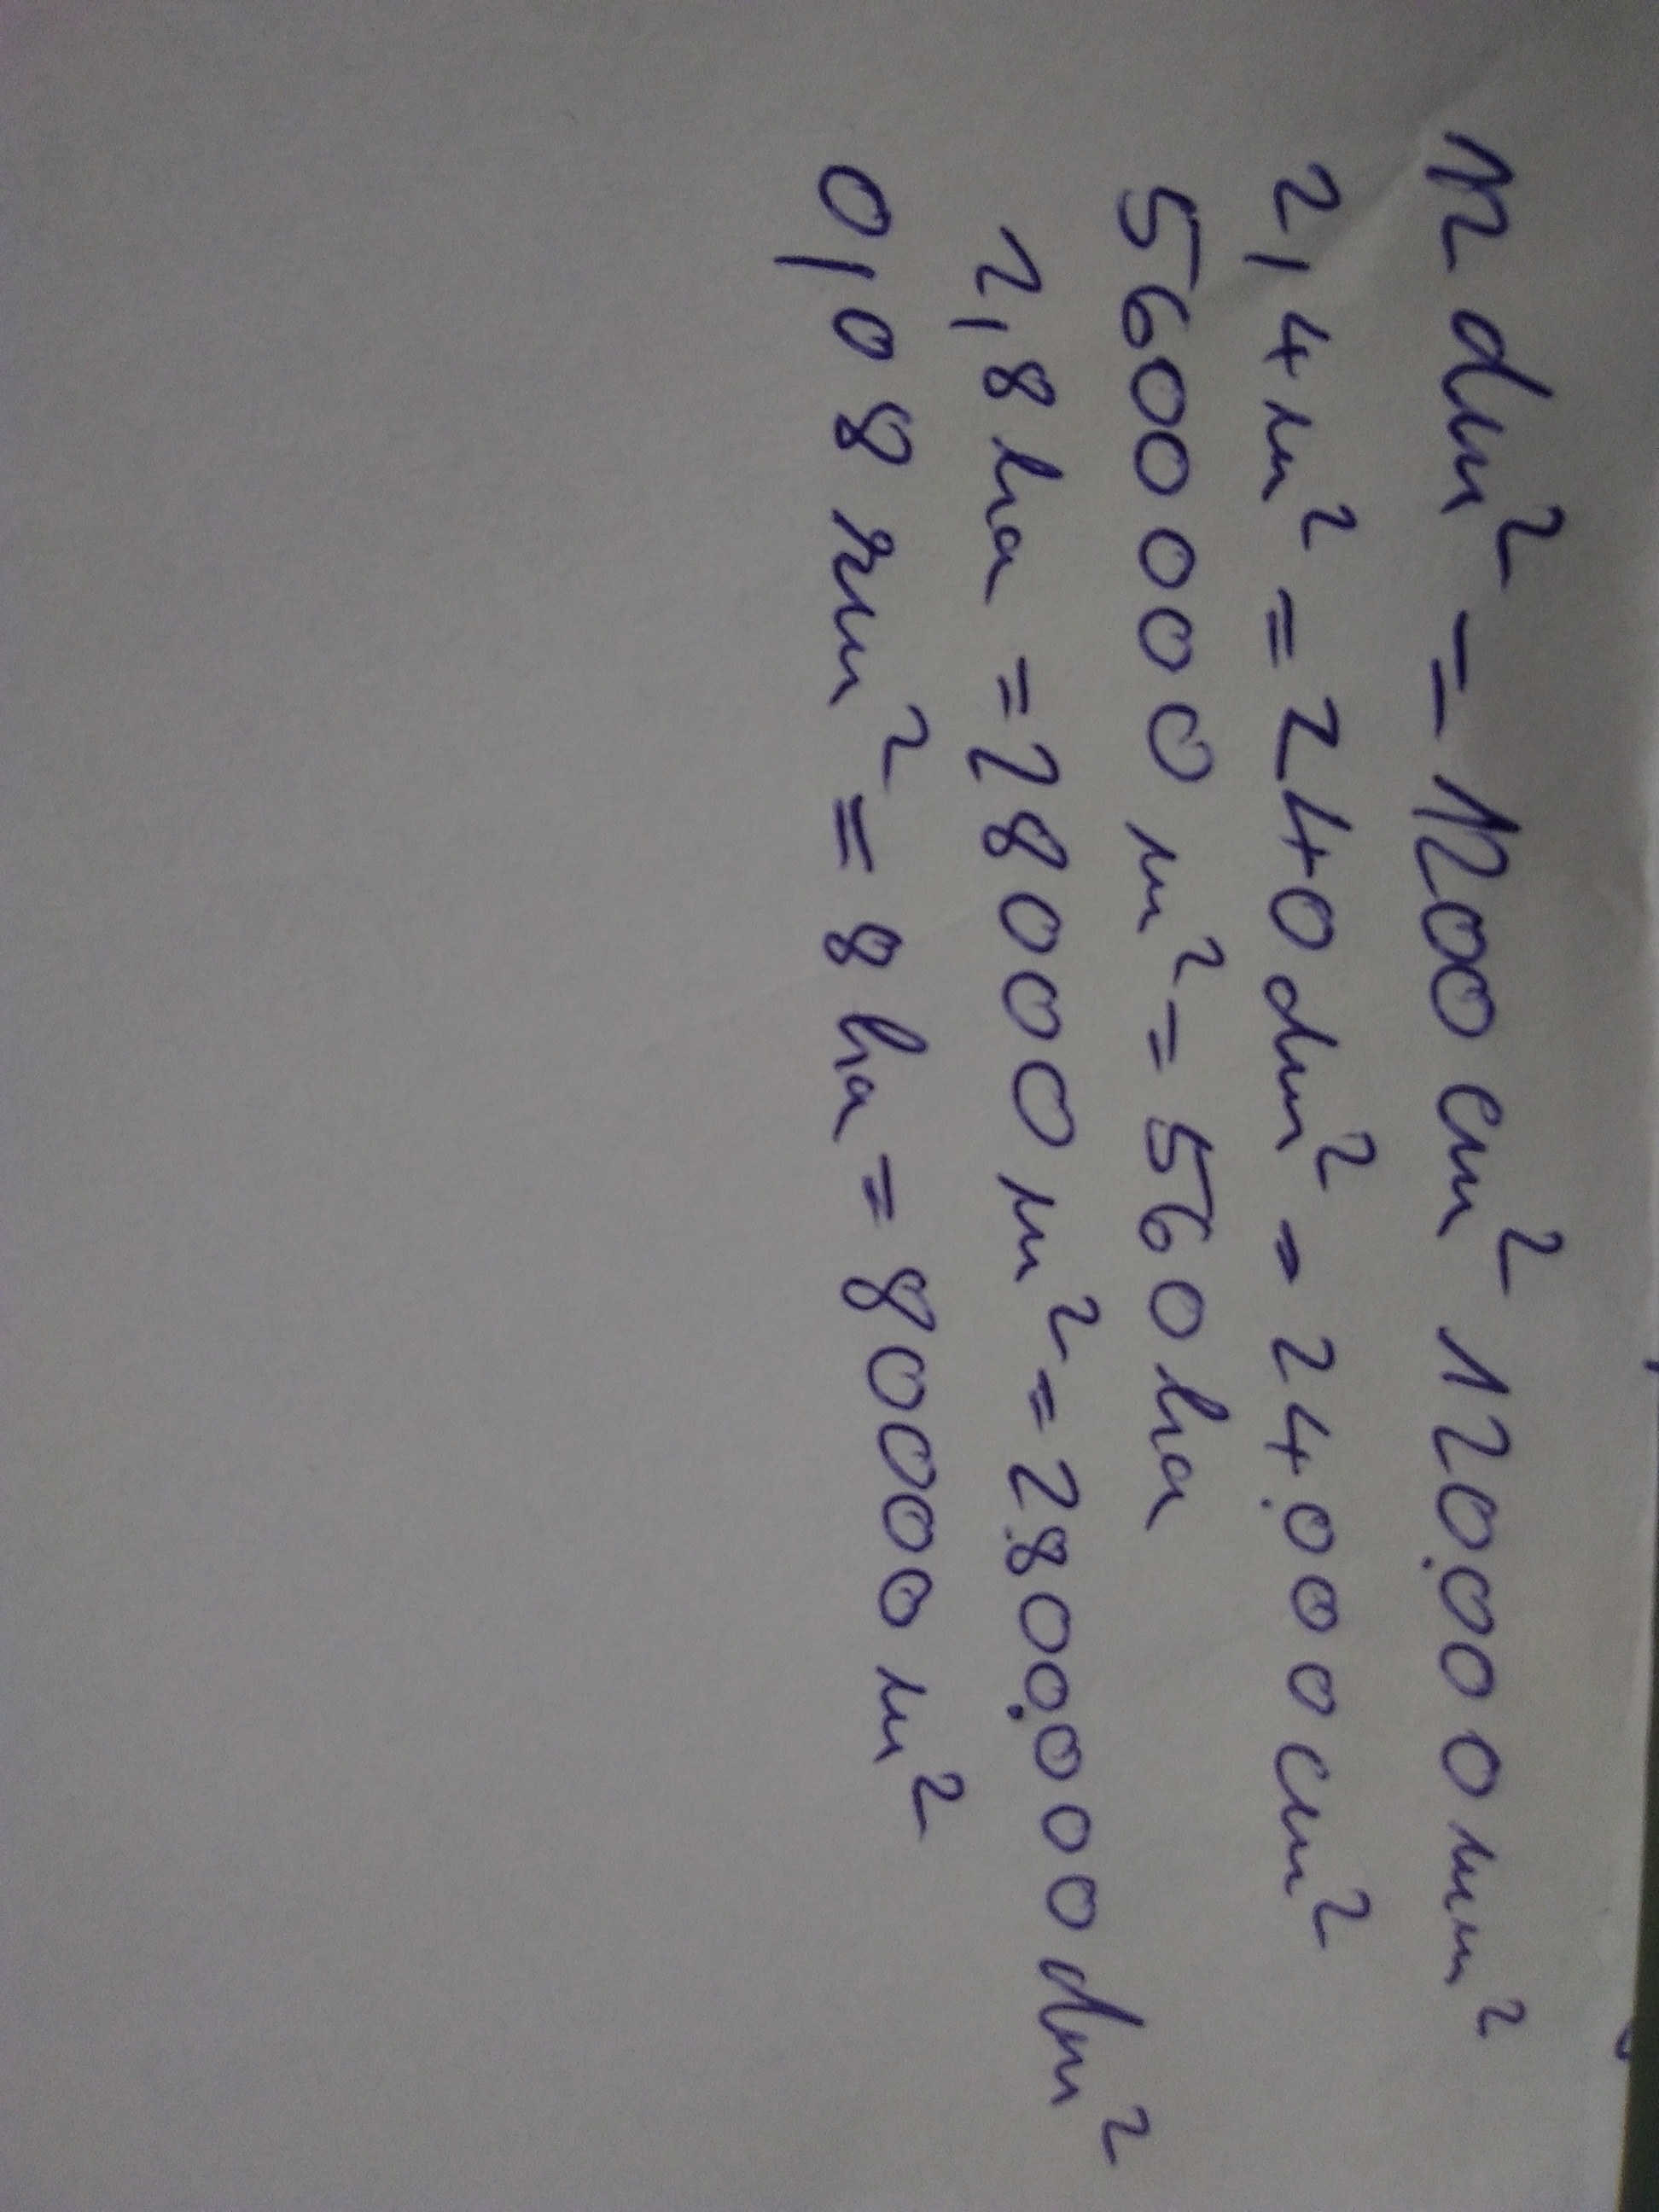 12 dm² = 1200 cm² 120.000 mm²
2,4 m² = 240 dm² = 24.000 cm²
5600000 m² = 560 ha
2,8 ha = 28000 m² = 2.800.000 dm²
0,08 km² = 8 ha = 80000 m²